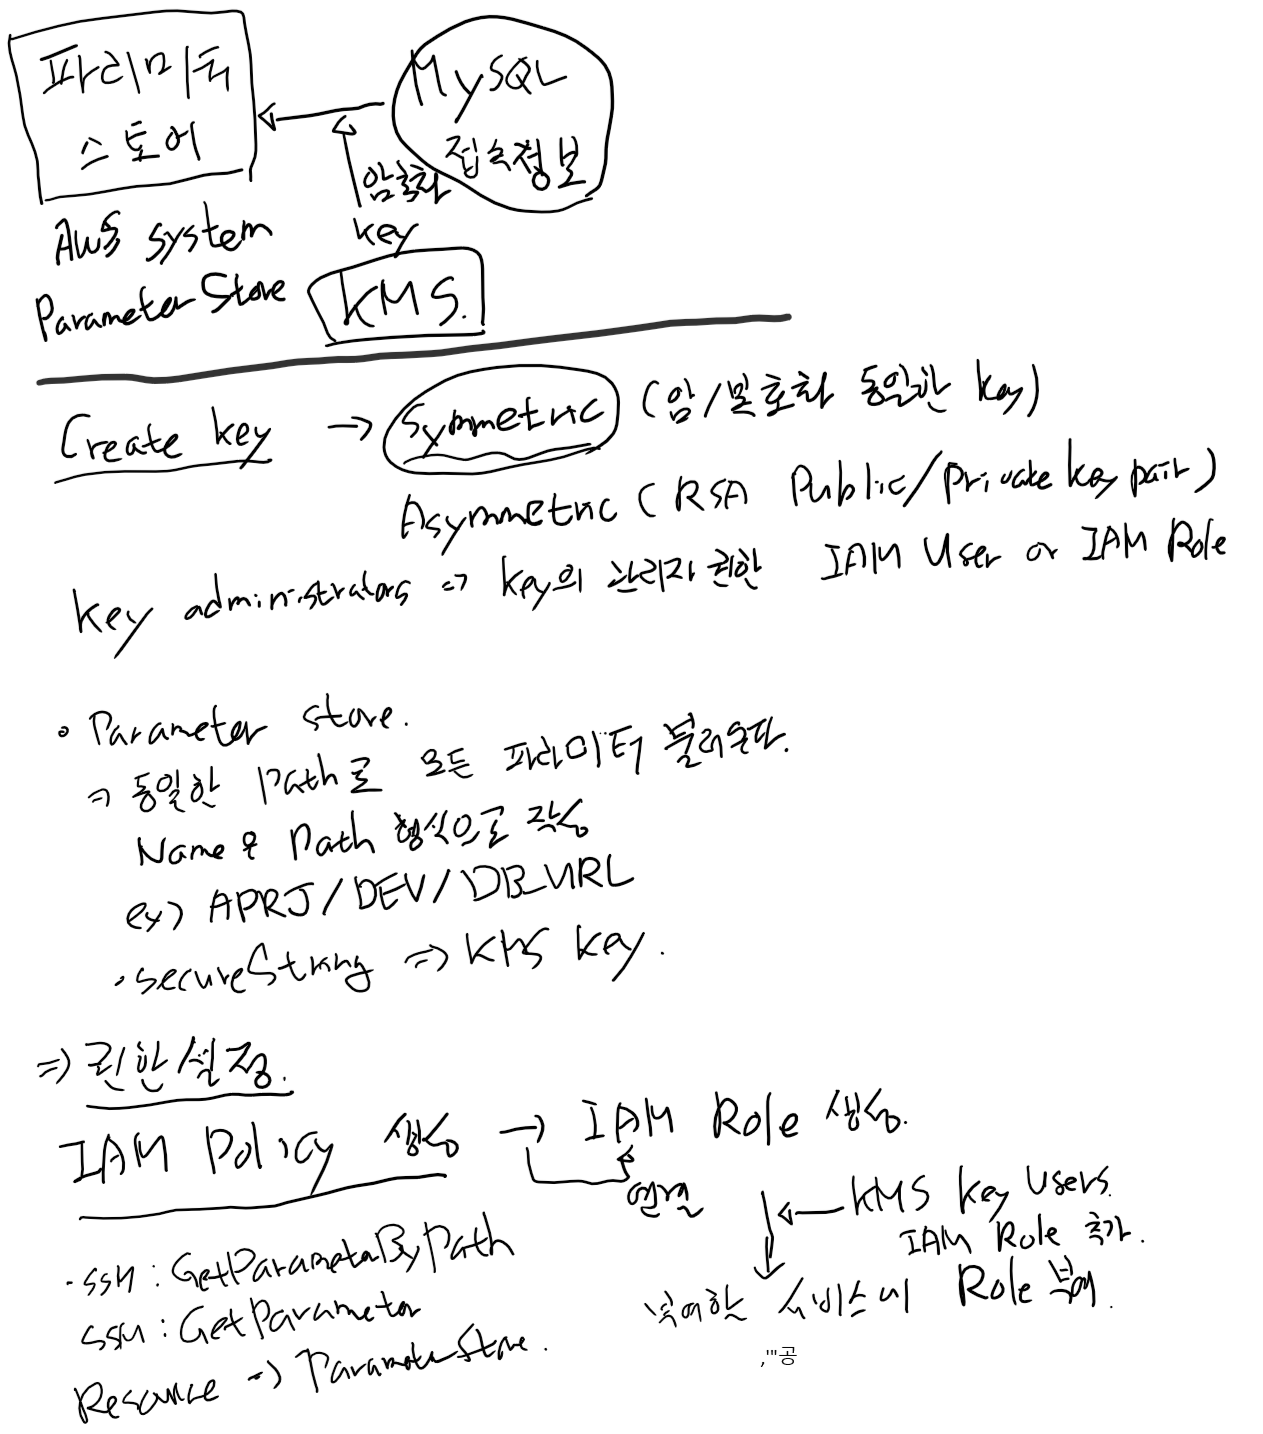 파라미터
스토어
MySQL
접속정보
암호화
key
AWS System
Parameter Store
KMS.
Create key → Symmetric (암/복호화 동일한 key)
Asymmetric (RSA Public/private key pair)
key administrators => key의 관리자 권한 IAM User or IAM Role
• Parameter store.
=> 동일한 path로 모든 파라미터 불러온다.
Name은 path 형식으로 작성
ex) APRJ/DEV/DB_URL
• secureString => KMS key.
=> 권한설정.
IAM Policy 생성 → IAM Role 생성.
연결
KMS key users.
IAM Role 추가.
서비스에 Role 부여.
• ssm : GetParameterByPath
ssm : GetParameter
Resource => ParameterStore.
,'"공